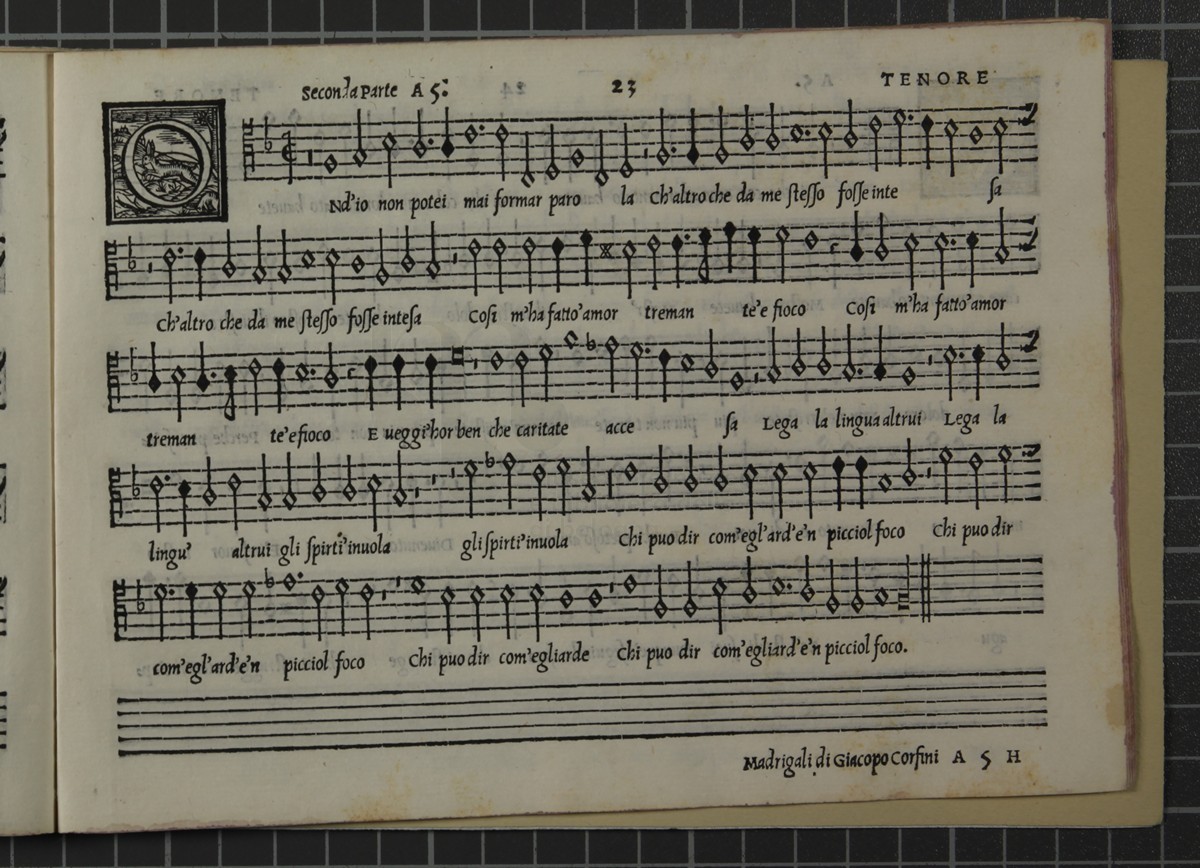 Seconda Parte A 5: 23 TENORE
O Nd'io non potei mai formar paro la Ch'altro che da me stesso fosse inte sa
Ch'altro che da me stesso fosse intesa Cosi m'ha fatto'amor treman te'e fioco Cosi m'ha fatto'amor
treman te'e fioco E ueggi'hor ben che caritate acce sa Lega la lingua altrui Lega la
lingu' altrui gli spirti'inuola gli spirti'inuola Chi puo dir com'egl'ard'e'n picciol foco Chi puo dir
com'egl'ard'e'n picciol foco Chi puo dir com'egliarde Chi puo dir com'egliard'e'n picciol foco.
Madrigali di Giacopo Corfini A 5 H